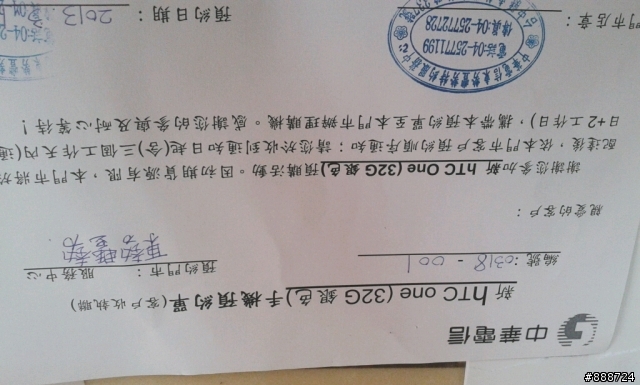 中華電信
新 hTC one (32G 銀色) 手機預約單 (客戶收執聯)
編號：0318 - 001
預約門市：東勢豐勢 服務中心
親愛的客戶：
謝謝您參加新 hTC One (32G 銀色) 預購活動。因初期貨源有限，本門市將於
配達後，依本門市客戶預約順序通知；請您於收到通知日起(含)三個工作天內(通
日+2工作日)，攜帶本預約單至本門市辦理購機。感謝您的參與及耐心等待！
門市店章：
中華電信東勢豐勢特約服務中心
電話:04-25771199
傳真:04-25772728
預約日期：2013.
電話:04-25
#888724